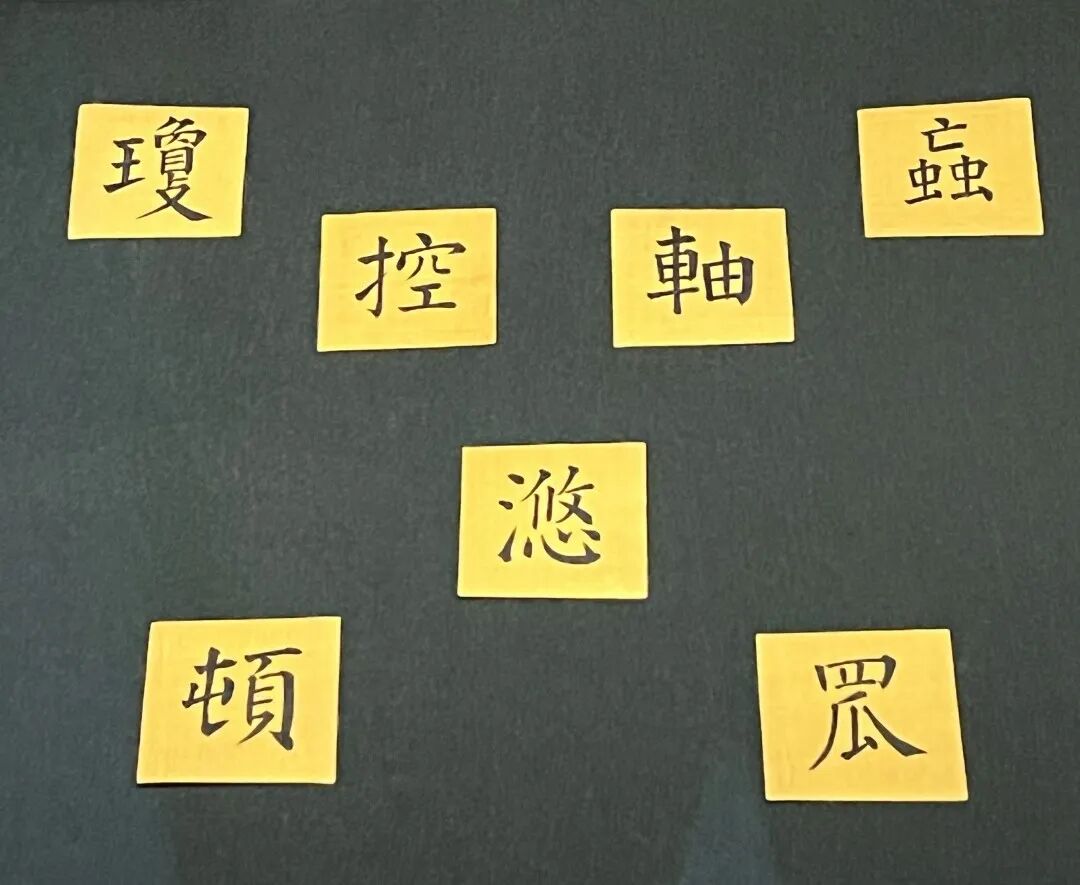 瓊 蝱
控 軸
滺
頓 罛